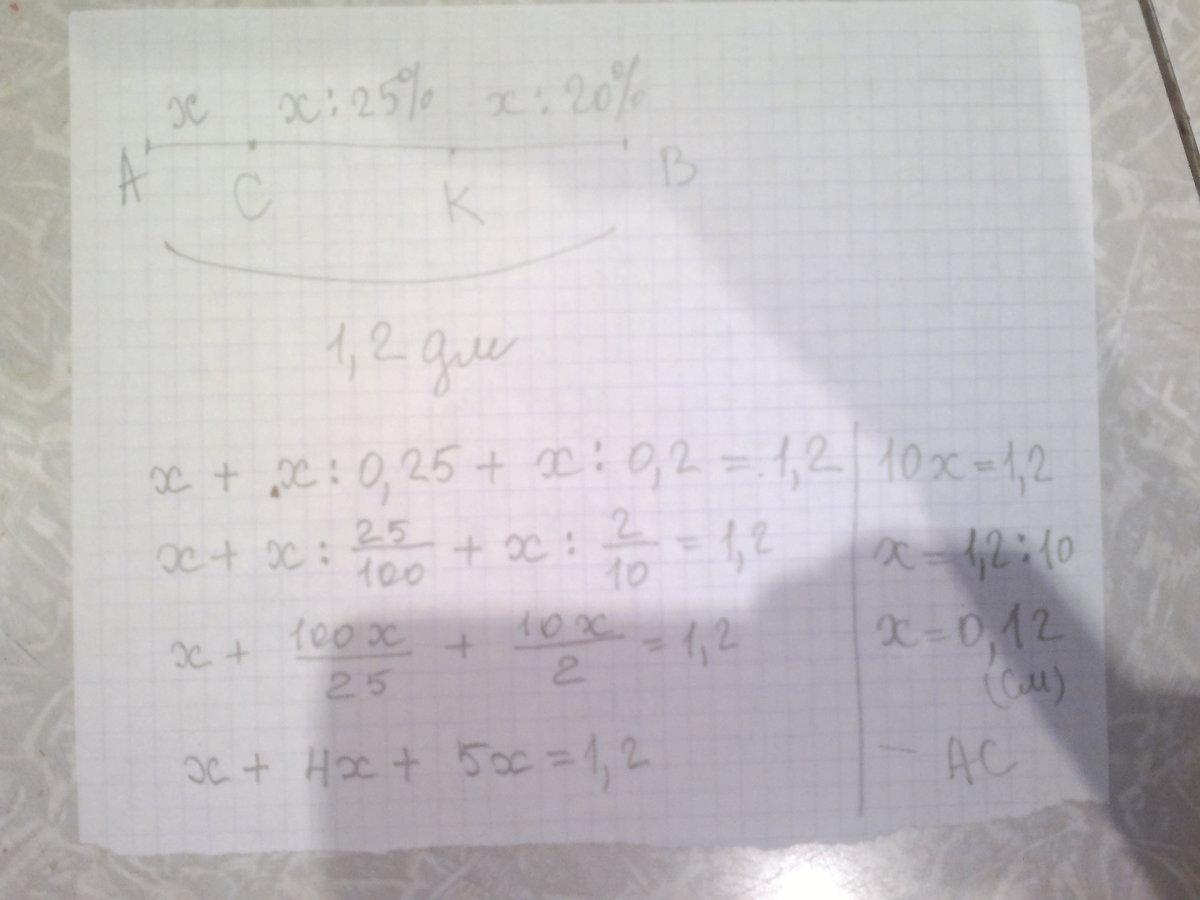 x x:25% x:20%
A C K B
1,2 дм
x + x:0,25 + x:0,2 = 1,2
x + x: 25/100 + x: 2/10 = 1,2
x + 100x/25 + 10x/2 = 1,2
x + 4x + 5x = 1,2
10x = 1,2
x = 1,2:10
x = 0,12
(см)
— AC